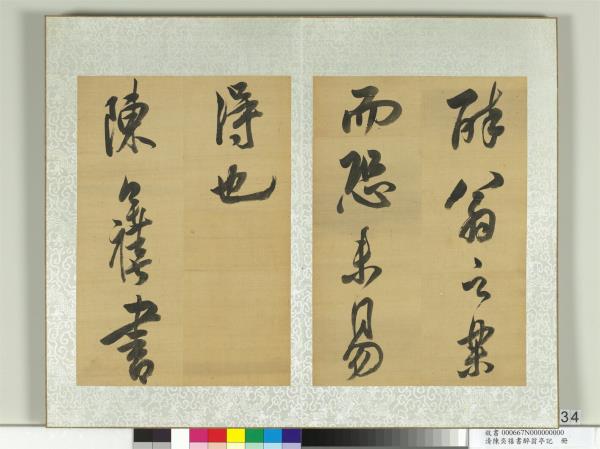 醉翁之樂
而恐未易
得也
陳奕禧書
34
故書 000667N000000000
清陳奕禧書醉翁亭記 冊